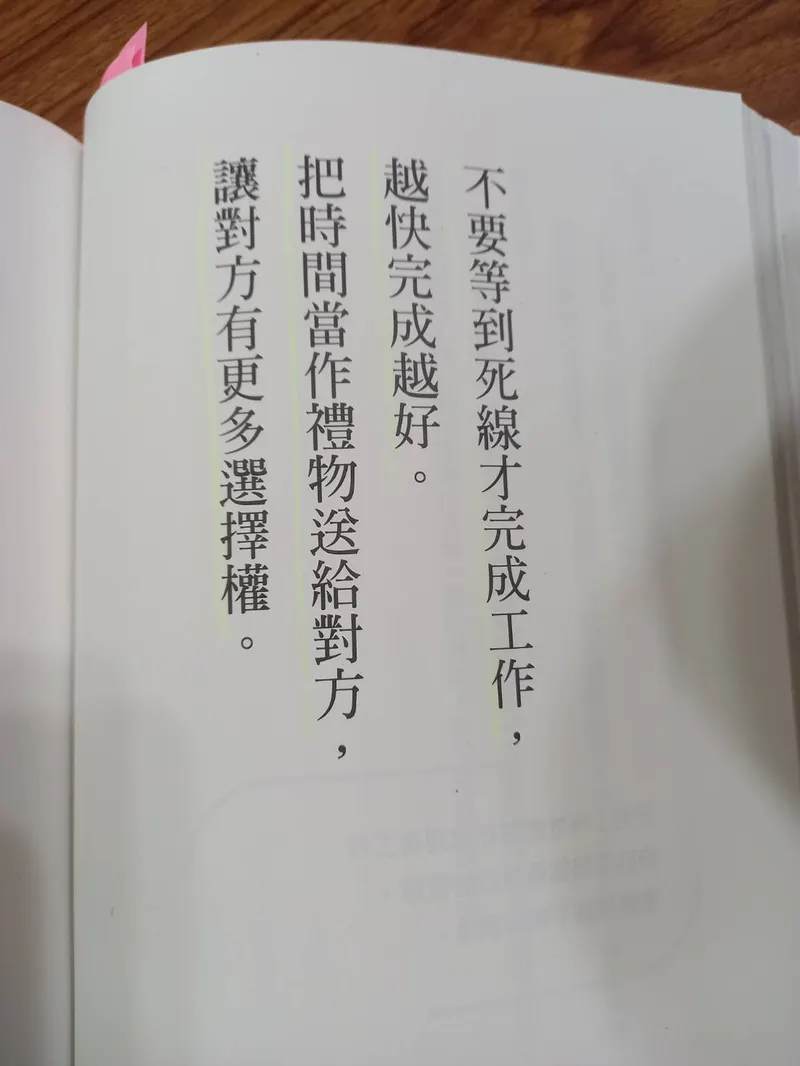 不要等到死線才完成工作，
越快完成越好。
把時間當作禮物送給對方，
讓對方有更多選擇權。